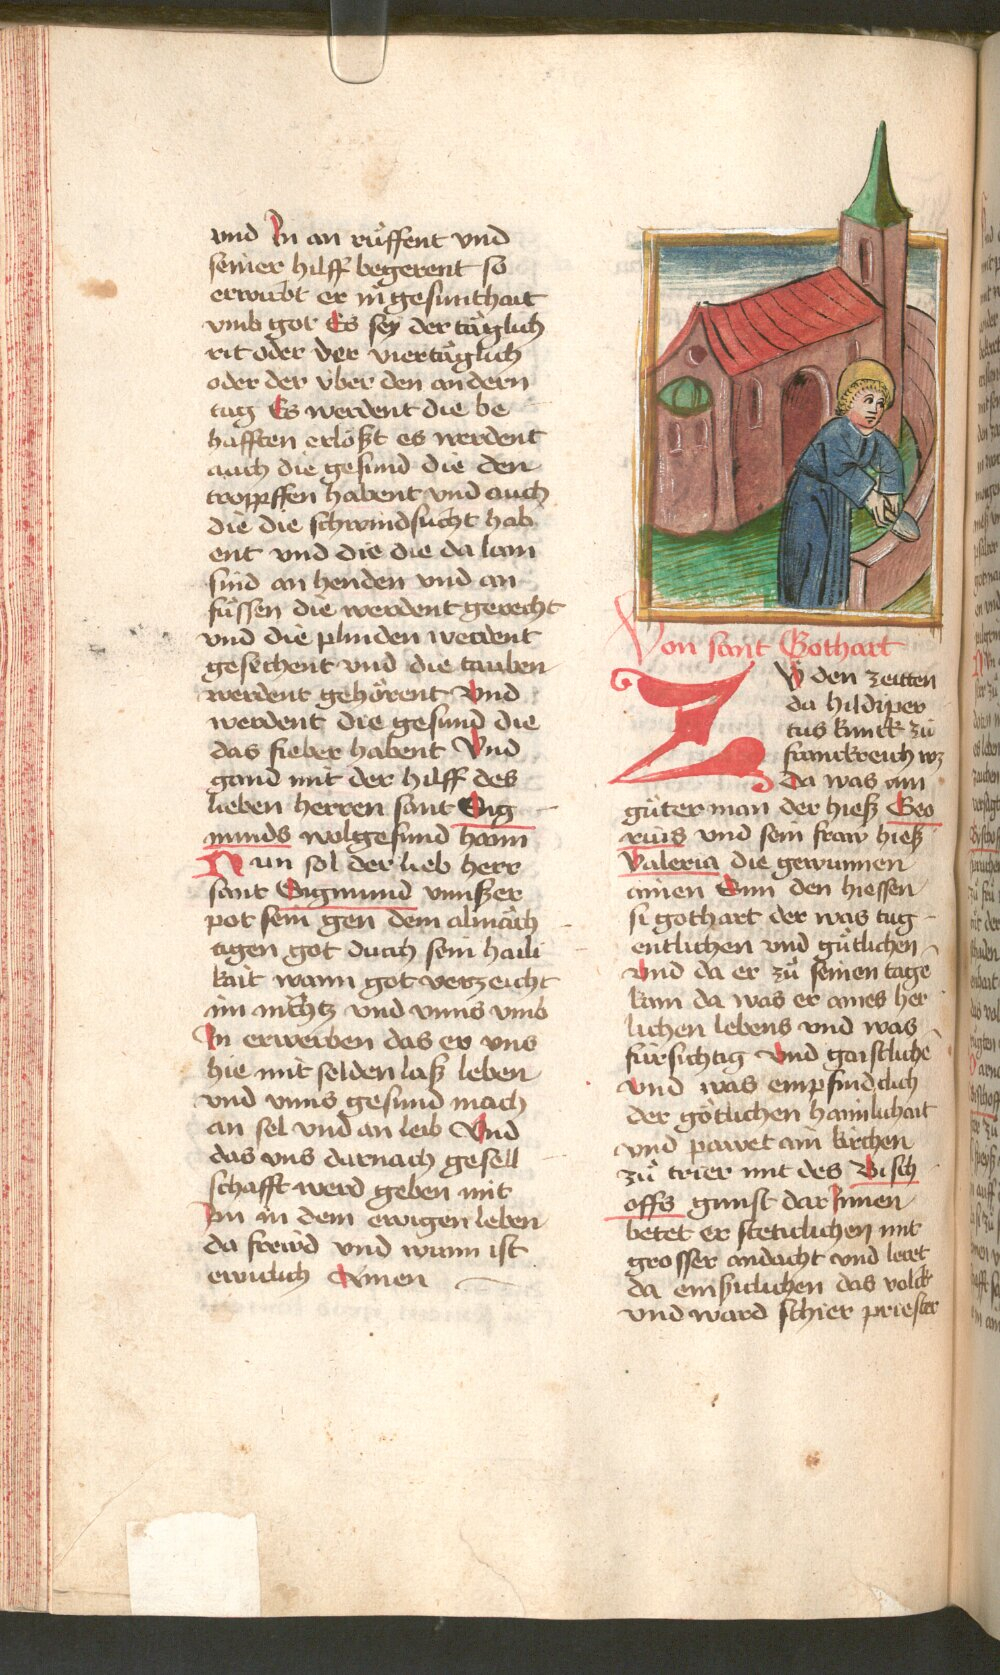 vnd In an růffent vnd
seiner hilff begerent so
erwirbt er in gesunthait
vmb got Es sey der täglich
rit oder der viertäglich
oder der vber den andern
tag Es werdent die be
hafften erlößt es werdent
auch die gesund die den
tropffen habent vnd auch
die die schwindsucht hab
ent vnd die die da lam
sind an henden vnd an
füssen die werdent gerecht
vnd die plinden werdent
gesechent vnd die tauben
werdent gehörent Vnd
werdent die gesund die
das fieber habent Vnd
gand mit der hilff des
lieben herren sant Sig
munds wolgesund haim
Nun sol der lieb herr
sant Sigmund vnnser
pot sein gen dem almäch
tigen got durch sein haili
kait wann got verzeicht
im nichtz vnd vnns vmb
In erwerben das er vns
hie mit selden laß leben
vnd vnns gesund mach
an sel vnd an leib Vnd
das vns darnach gesell
schafft werd geben mit
Im in dem ewigen leben
da frewd vnd wunn ist
ewiclich Amen
Von sant Gothart
Zů den zeitten
da hildiper
tus künck zů
franckreich wz
Da was ain
gůter man der hieß Geo
rius vnd sein fraw hieß
Valeria die gewunnen
ainen Sun den hiessen
si gothart der was tug
entlichen vnd gůtlichen
Vnd da er zů seinen tage
kam da was er aines her
lichen lebens vnd was
fürsichtig Vnd gaistliche
Vnd was empfindclich
der götlichen haimlichait
vnd pawet ain kirchen
zů trier mit des Bisch
offs gunst dar Innen
betet er steticlichen mit
grosser andacht vnd leret
da emssiclichen das volck
vnd ward schier priester